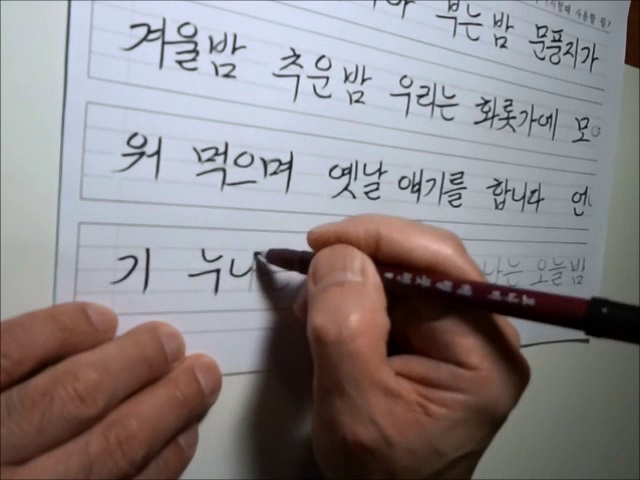 부는밤 문풍지가
겨울밤 추운밤 우리는 화롯가에 모
워 먹으며 옛날 얘기를 합니다 언
기 누나 나는 오늘밤